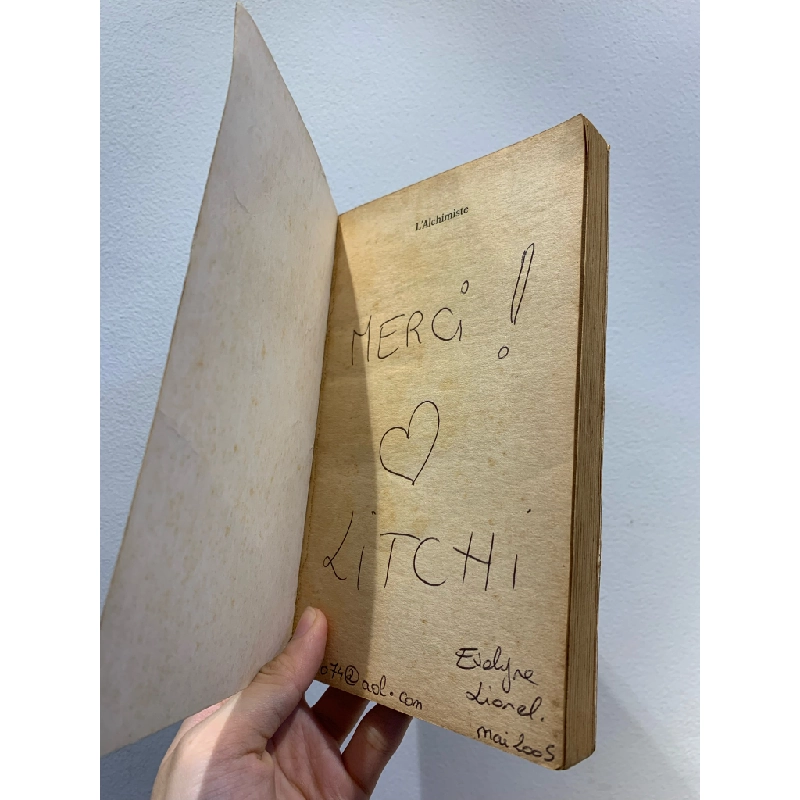 L'Alchimiste
MERCi !
LiTCHi
Evelyne
Lionel.
074@aol.com
mai 2005